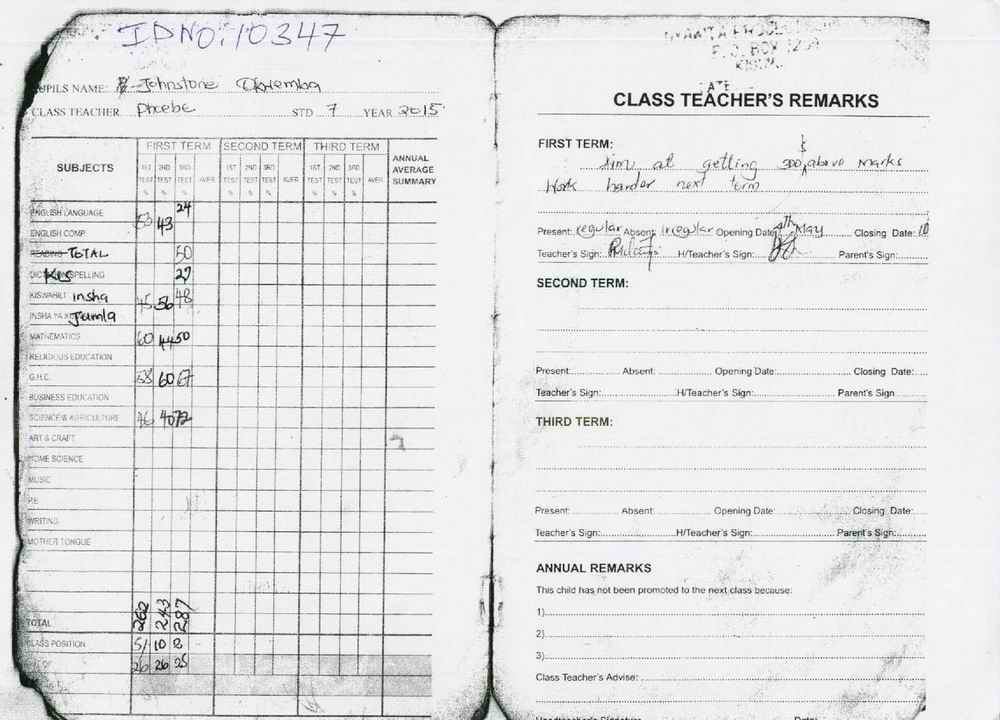 IDNO:10347
PUPILS NAME: Johnstone Okwemba
CLASS TEACHER Phoebe STD 7 YEAR 2015
SUBJECTS FIRST TERM SECOND TERM THIRD TERM ANNUAL AVERAGE SUMMARY
1ST TEST % 2ND TEST % 3RD TEST % AVER 1ST TEST % 2ND TEST % 3RD TEST % AVER 1ST TEST % 2ND TEST % 3RD TEST % AVER
ENGLISH LANGUAGE 24
53 43
ENGLISH COMP.
READING TOTAL 50
SPELLING 27
KISWAHILI insha 45 56 48
INSHA YA Jumla
MATHEMATICS 60 44 50
RELIGIOUS EDUCATION
G.H.C. 58 60 67
BUSINESS EDUCATION
SCIENCE & AGRICULTURE 46 40 72
ART & CRAFT
HOME SCIENCE
MUSIC
P.E
WRITING
MOTHER TONGUE
TOTAL 262 243 287
CLASS POSITION 5/ 10 2
26 26 25
P.O. BOX
CLASS TEACHER'S REMARKS
FIRST TERM:
Aim at getting 300 & above marks
Work harder next term
Present: regular Absent: irregular Opening Date: 4th May Closing Date: 10
Teacher's Sign: H/Teacher's Sign: Parent's Sign:
SECOND TERM:
Present: Absent: Opening Date: Closing Date:
Teacher's Sign: H/Teacher's Sign: Parent's Sign
THIRD TERM:
Present: Absent: Opening Date: Closing Date:
Teacher's Sign: H/Teacher's Sign: Parent's Sign:
ANNUAL REMARKS
This child has not been promoted to the next class because:
1)
2)
3)
Class Teacher's Advise:
Headteacher's Signature Date: